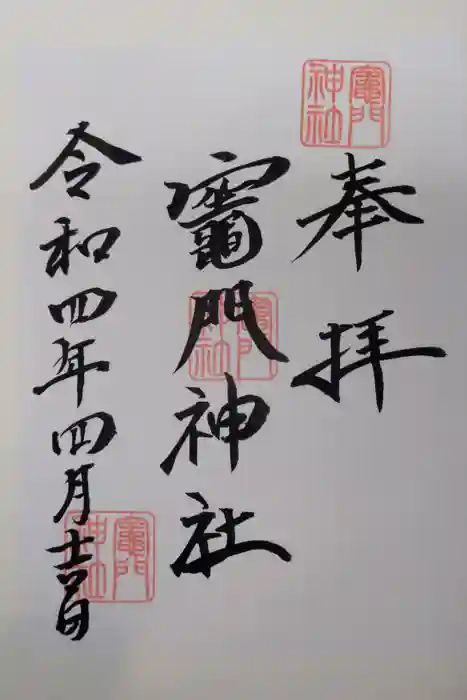 竈門
神社
奉拝
竈門神社
竈門
神社
令和四年四月吉日
竈門
神社